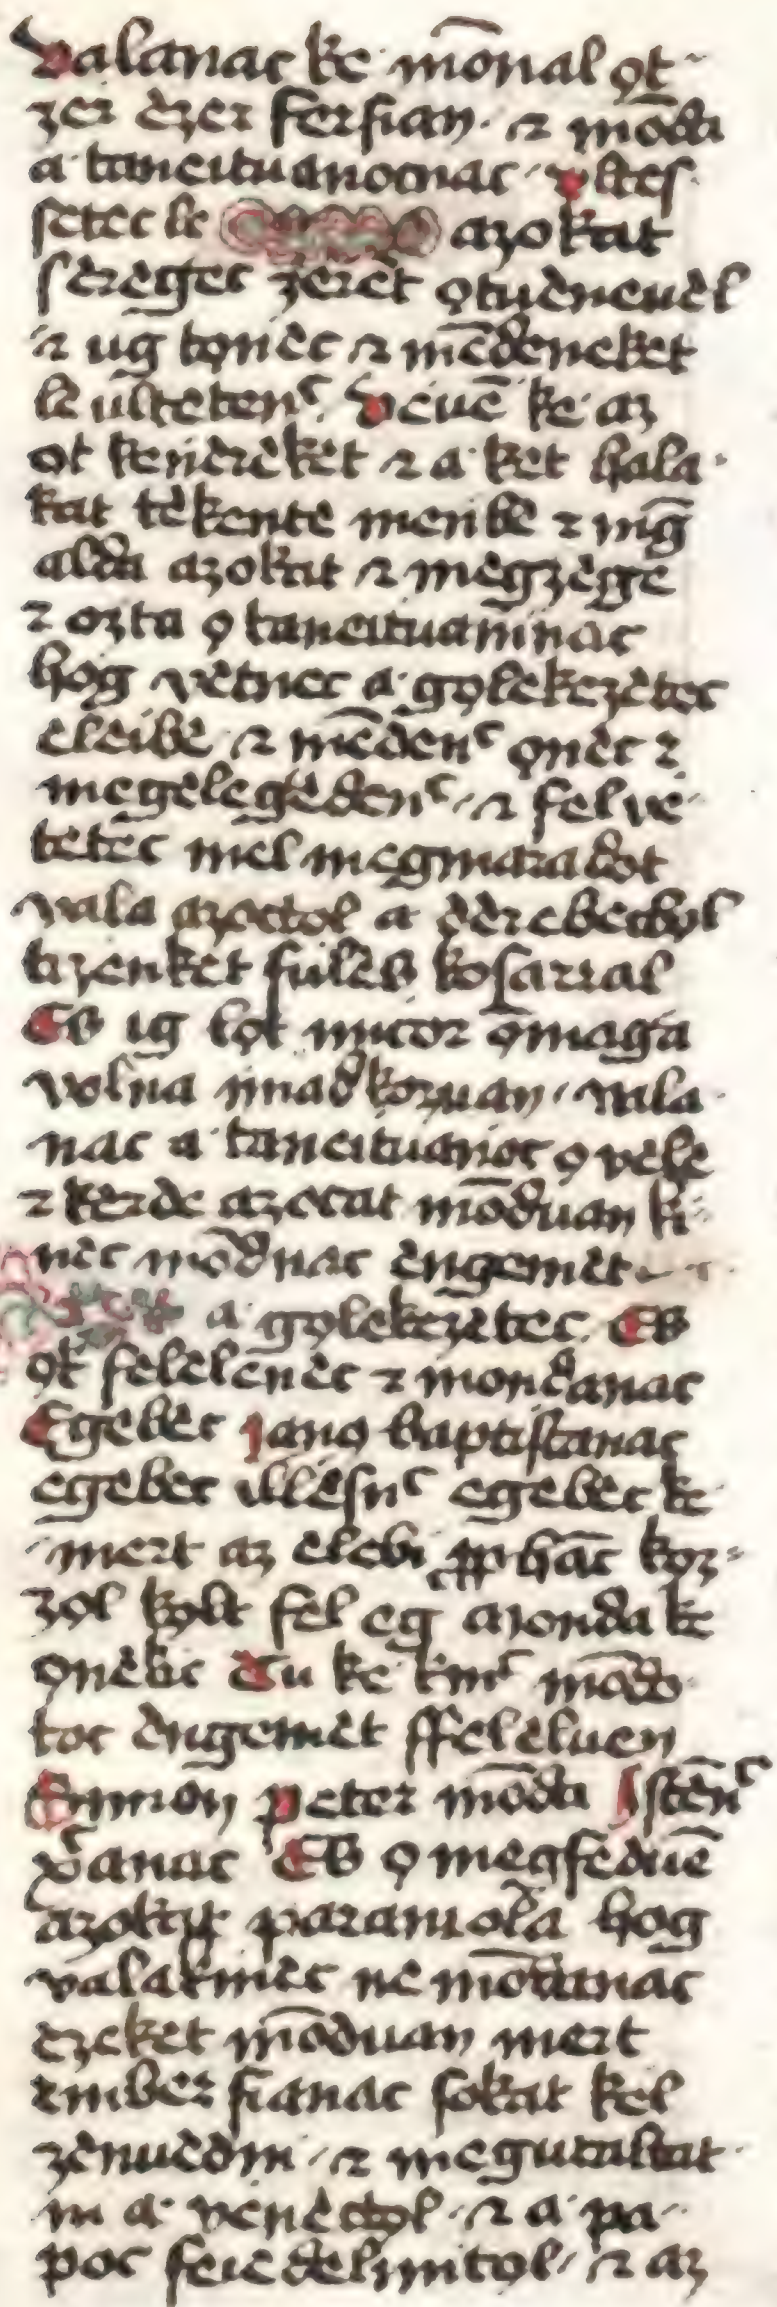 Valanac ke mōnal ọt
zer ėzer ferfian · ꝛ mōda
a taneituanocnac · vltes
setec le azokat
sėrėgec zerėt ọtuėneuėl
ꝛ uḡ tọnėc ꝛ mēdeneket
le ultetenc̄ · Veuē ke az
ọt keńėrėkėt ꝛ a · ket hala
kat tėkente menbe ꝛ mḡ
alda azokat ꝛ mėgzėge
ꝛ ozta ọ taneituańinac
hoḡ vėtnec a · gọlekezėtec
eleibe · ꝛ mēdenc̄ ọnėc ꝛ
megelegėdenc̄ · ꝛ fel ve
tetēc mel megmaradot
vala azoctol a dėrebecbọl
tizenket fulės kosarral
Es ig lọt micor ọmaga
volna imadkozuan · vala
nac a · taneituańoc ọ vele
ꝛ kerde azocat mōduan ki
nėc mōdnac ėngemėt
a gọlekezėtec · Es
ọt felelēnėc ꝛ mondanac
Egebėc Janọ baptistanac
egebec illesnc̄ egebėc ke
mert az elebi ꝓphac̄ koz
zọl kọlt fel eḡ Monda ke
ọnėkic Tu ke kinc̄ mōdo
toc ėngemėt ffelėluen
Simon peter mōda Istēnc̄
x̄sanac Es ọ megfėduē
azokat parantola hoḡ
valakinėc ne mōdanac
ezeket mōduan mert
ember fianac sokat kel
zėnuėdni · ꝛ megutaltat
ni a · venėctọl · ꝛ a · pa
poc feiedelmitọl · ꝛ az